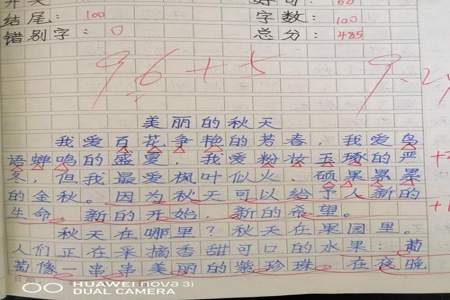 结尾：100 字数：100
错别字：0 总分：485
96+5
美丽的秋天
我爱百花争艳的芳春，我爱鸟
语蝉鸣的盛夏，我爱粉妆玉琢的严
冬，但我最爱枫叶似火、硕果累累
的金秋。因为秋天可以给予人新的
生命。新的开始，新的希望。
秋天在哪里？秋天在果园里。
人们正在采摘香甜可口的水果：葡
萄像一串串美丽的紫珍珠。在夜晚
HUAWEI nova 3i
DUAL CAMERA